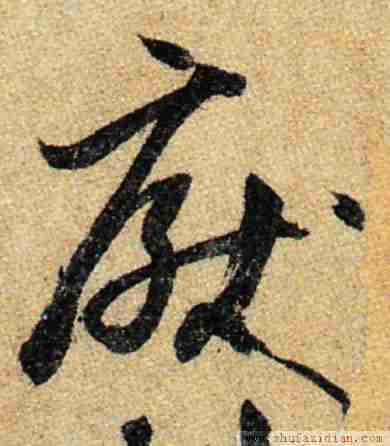 厭
www.shufazidian.com